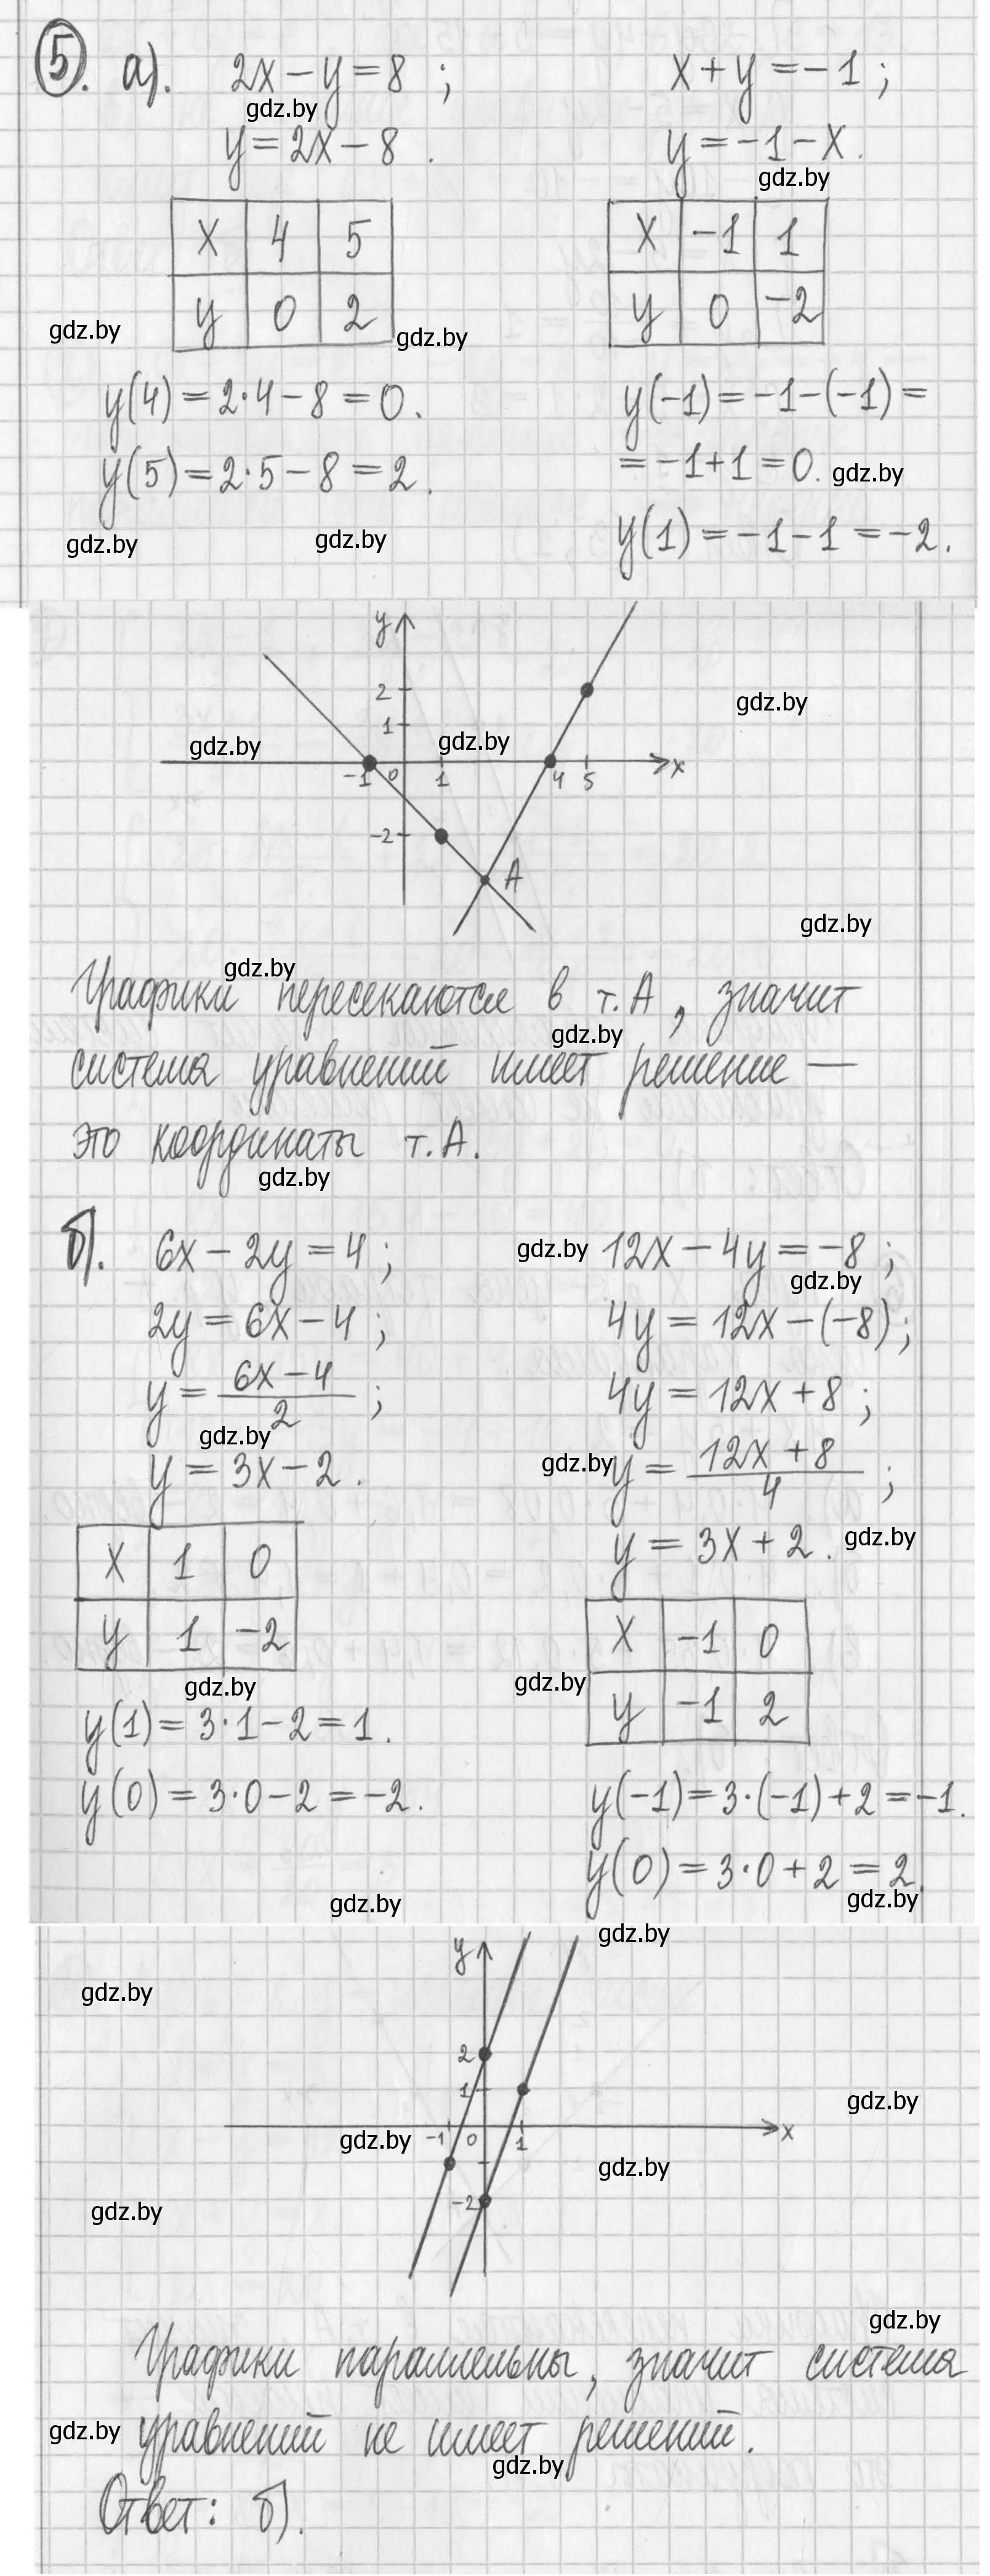 5. а). 2x − y = 8 ; x + y = −1 ;
gdz.by
y = 2x − 8 . y = −1 − x.
gdz.by
x 4 5 x −1 1
y 0 2 y 0 −2
gdz.by gdz.by
y(4) = 2·4 − 8 = 0. y(−1) = −1−(−1) =
y(5) = 2·5 − 8 = 2. = −1+1 = 0. gdz.by
gdz.by gdz.by y(1) = −1−1 = −2.
y
2
gdz.by
1
gdz.by gdz.by
−1 0 1 4 5 x
−2
A
gdz.by
gdz.by
Графики пересекаются в т. А, значит
gdz.by
система уравнений имеет решение —
это координаты т. А.
gdz.by
б). 6x − 2y = 4 ; gdz.by 12x − 4y = −8 ;
gdz.by
2y = 6x − 4 ; 4y = 12x − (−8) ;
y = 6x − 4 / 2 ; 4y = 12x + 8 ;
gdz.by
y = 3x − 2 . gdz.by y = 12x + 8 / 4 ;
y = 3x + 2 . gdz.by
x 1 0 x −1 0
y 1 −2 y −1 2
gdz.by gdz.by
y(1) = 3·1 − 2 = 1 .
y(0) = 3·0 − 2 = −2 . y(−1) = 3·(−1) + 2 = −1.
y(0) = 3·0 + 2 = 2.
gdz.by gdz.by
gdz.by
y
gdz.by
2
1
gdz.by
−1 0 1 x
gdz.by
gdz.by
−2
gdz.by
gdz.by
Графики параллельны, значит система
gdz.by уравнений не имеет решений.
gdz.by
Ответ: б).